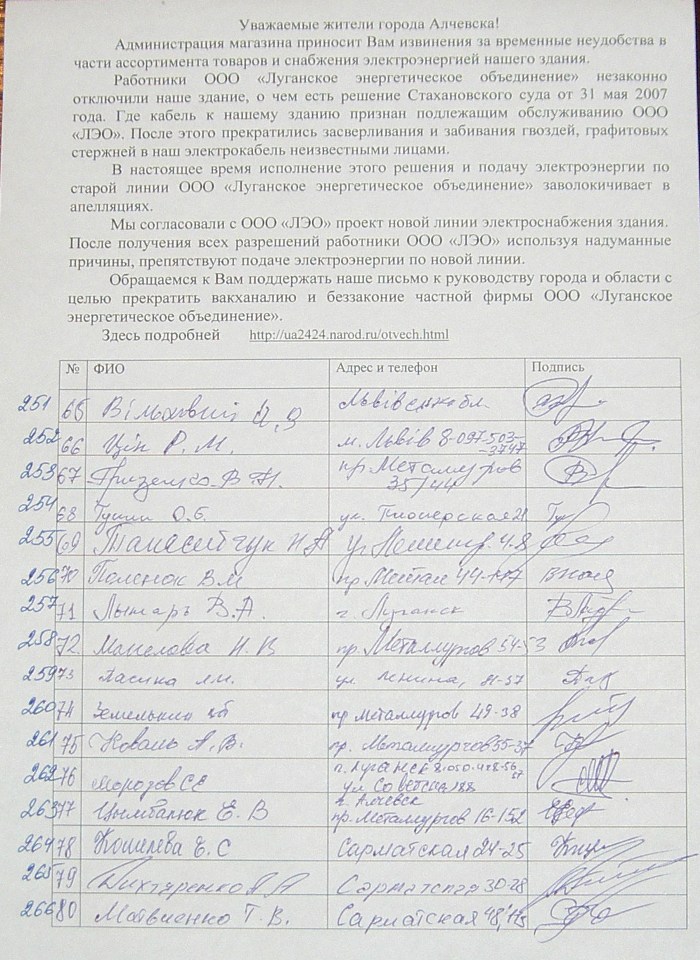 Уважаемые жители города Алчевска!
Администрация магазина приносит Вам извинения за временные неудобства в
части ассортимента товаров и снабжения электроэнергией нашего здания.
Работники ООО «Луганское энергетическое объединение» незаконно
отключили наше здание, о чем есть решение Стахановского суда от 31 мая 2007
года. Где кабель к нашему зданию признан подлежащим обслуживанию ООО
«ЛЭО». После этого прекратились засверливания и забивания гвоздей, графитовых
стержней в наш электрокабель неизвестными лицами.
В настоящее время исполнение этого решения и подачу электроэнергии по
старой линии ООО «Луганское энергетическое объединение» заволокичивает в
апелляциях.
Мы согласовали с ООО «ЛЭО» проект новой линии электроснабжения здания.
После получения всех разрешений работники ООО «ЛЭО» используя надуманные
причины, препятствуют подаче электроэнергии по новой линии.
Обращаемся к Вам поддержать наше письмо к руководству города и области с
целью прекратить вакханалию и беззаконие частной фирмы ООО «Луганское
энергетическое объединение».
Здесь подробней http://ua2424.narod.ru/otvech.html
№ ФИО Адрес и телефон Подпись
251 65
252 66 Цін Р. М. м. Львів 8-097-503-
-3747
253 67 В. Н. пр. Металлургов
35/44
254 68 О. Б. ул. Пионерская 21
255 69
256 70 Поленок В М 44-117
257 71 Лымарь В. А. г. Луганск
258 72 Н. В пр. Металлургов 54-53
259 73 ул. Ленина,
260 74 пр Металлургов 49-38
261 75 Коваль А. В. пр. Металлургов 55-37
262 76 Морозов С Е г. Луганск
ул Советская
263 77 Цымбалюк Е. В г. Алчевск
пр. Металлургов 16-152
264 78 Кошелева Е. С Сарматская 24-25
265 79 Дихтяренко Сарматская 30-28
266 80 Матвиенко Т. В. Сарматская 48,